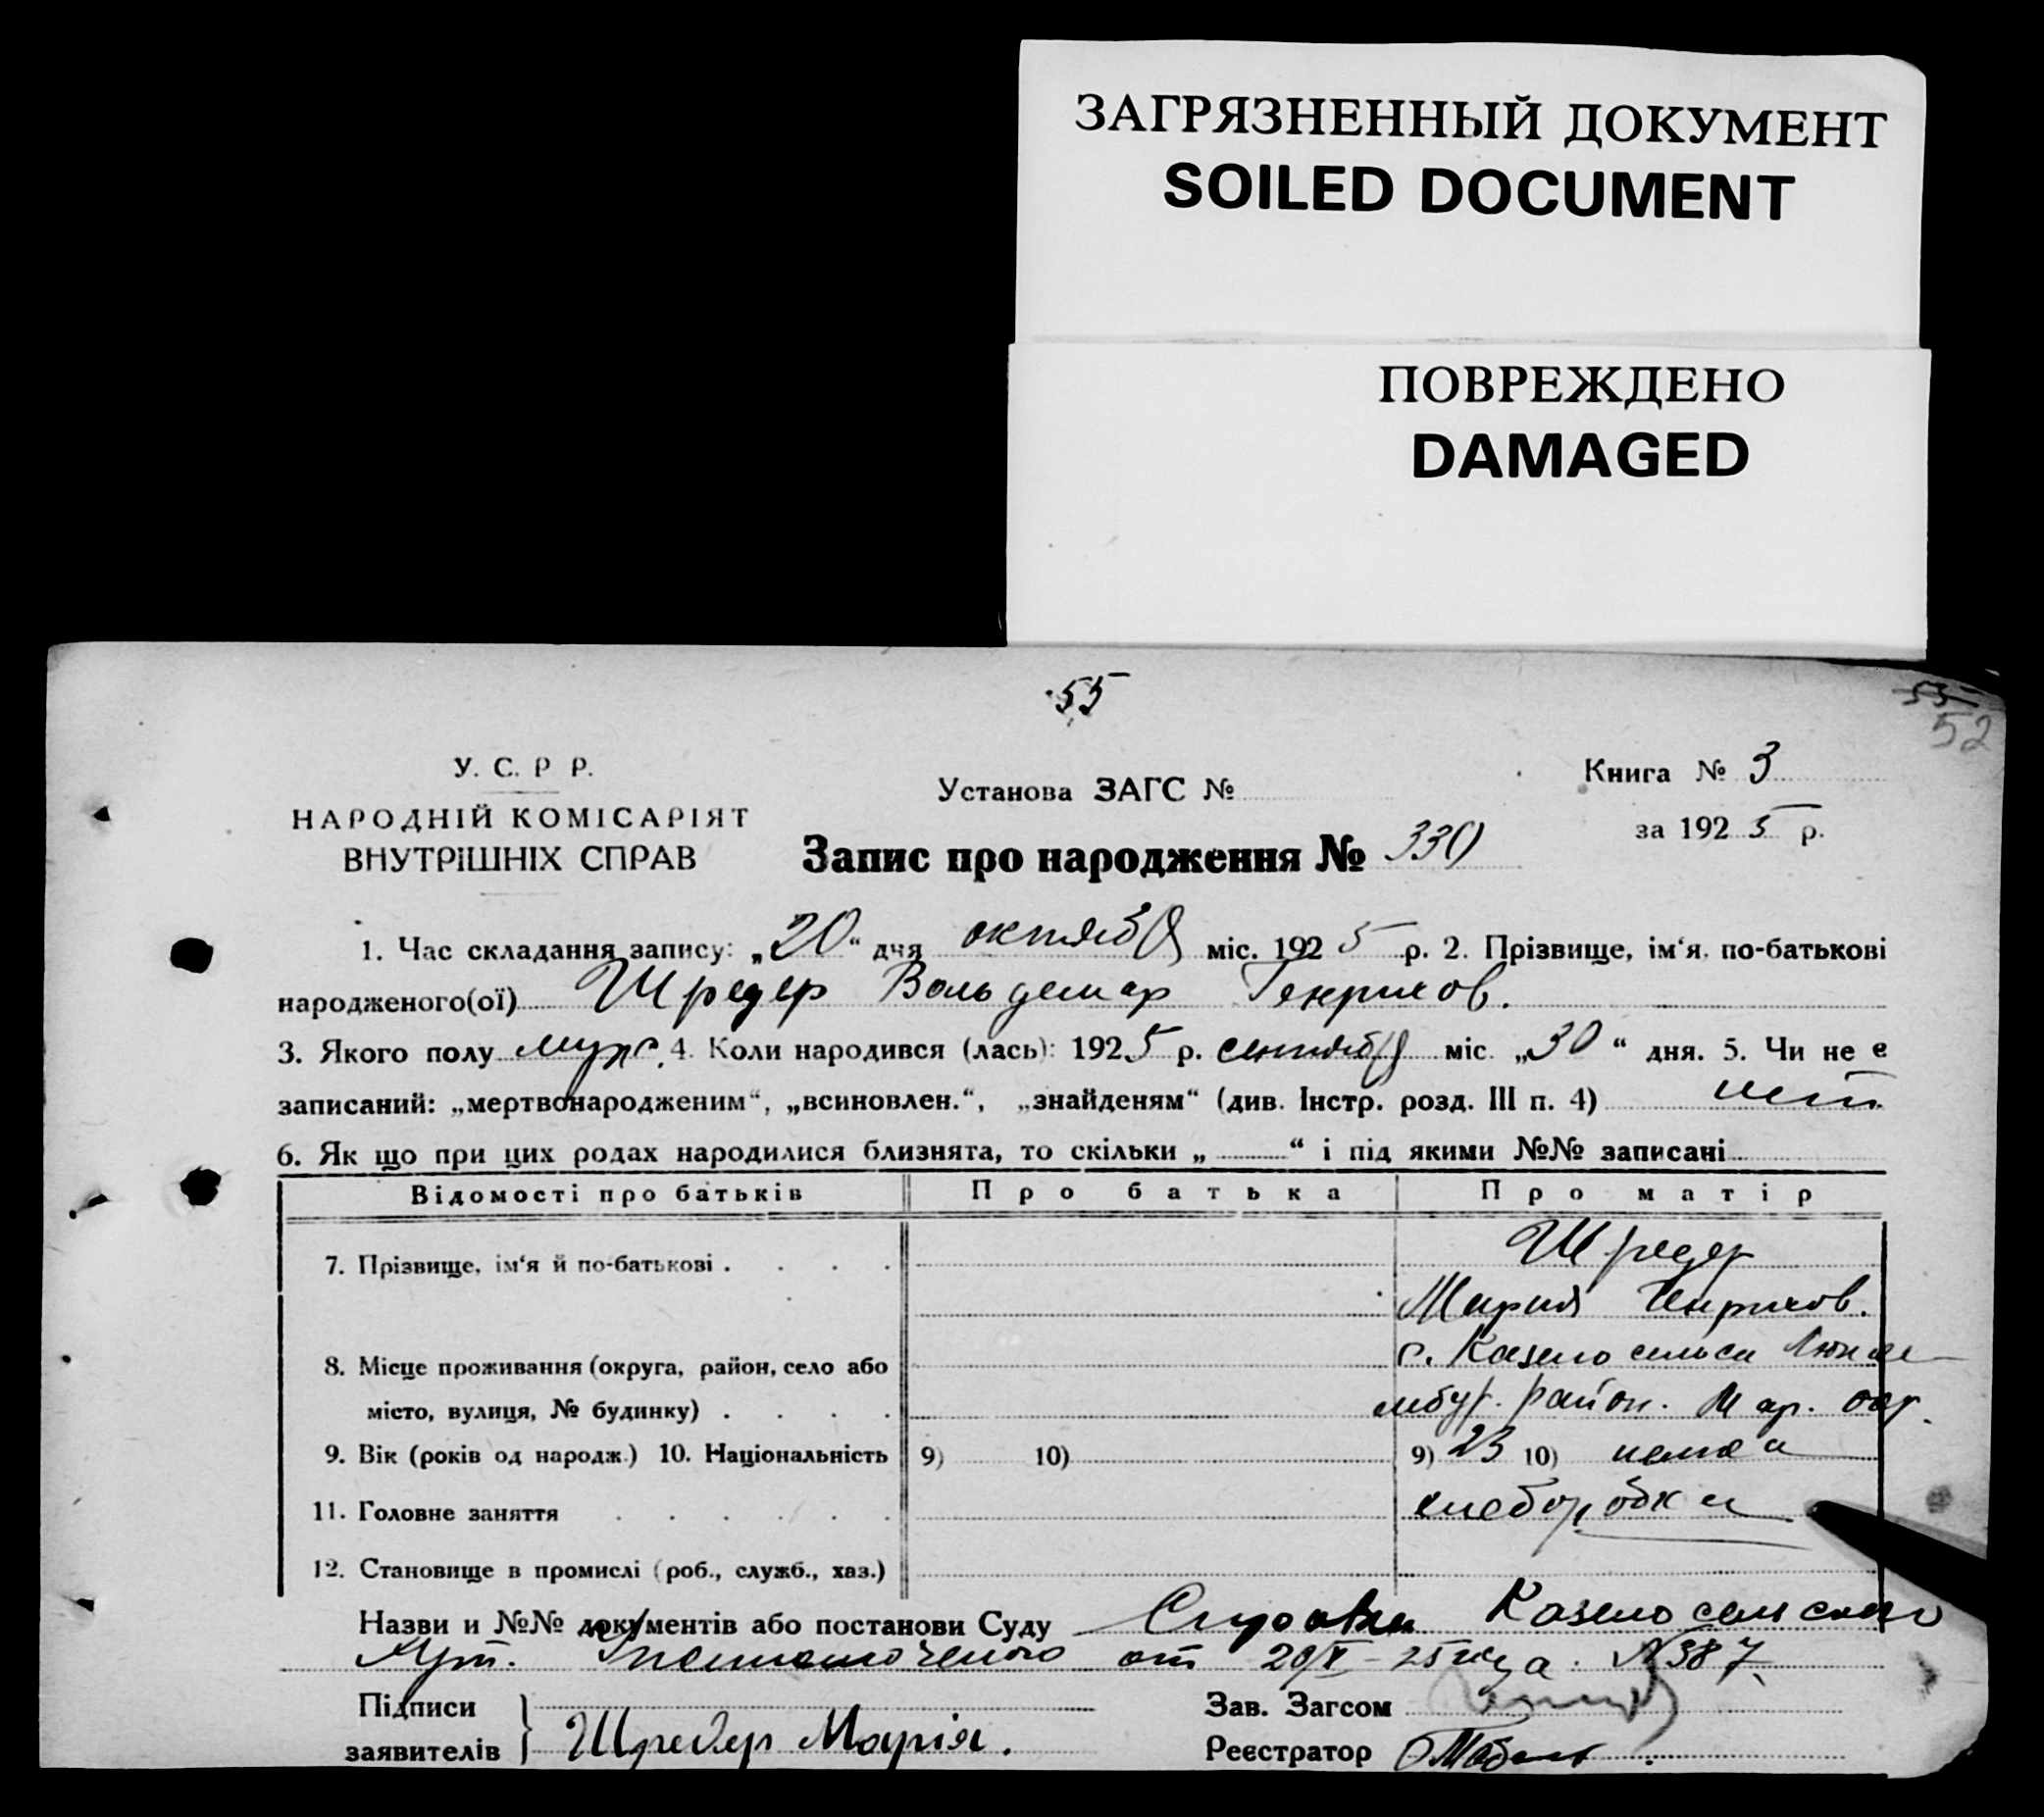 ЗАГРЯЗНЕННЫЙ ДОКУМЕНТ
SOILED DOCUMENT
ПОВРЕЖДЕНО
DAMAGED
55
55
52
У. С. Р Р.
НАРОДНІЙ КОМІСАРІЯТ
ВНУТРІШНІХ СПРАВ
Установа ЗАГС №
Книга № 3
за 1925 р.
Запис про народження № 330
1. Час складання запису: „20“ дня октября міс. 1925 р. 2. Прізвище, ім‘я, по-батькові
народженого(ої) Шредер Вольдемар Генрихов.
3. Якого полу муж. 4. Коли народився (лась): 1925 р. сентября міс. „30“ дня. 5. Чи не е
записаний: „мертвонародженим“, „всиновлен.“, „знайденям“ (див. Інстр. розд. III п. 4) нет
6. Як що при цих родах народилися близнята, то скільки „ “ і під якими №№ записані
Відомості про батьків Про батька Про матір
7. Прізвище, ім‘я й по-батькові . . . . Шредер
Мария Генрихов.
8. Місце проживання (округа, район, село або с.
місто, вулиця, № будинку) . . . . район. Мар. окр.
9. Вік (років од народж.) 10. Національність 9) 10) 9) 23 10) немка
11. Головне заняття . . . . . . хлеборобка
12. Становище в промислі (роб., служб., хаз.)
Назви и №№ документів або постанови Суду Справка
от 20/X-25 года № 387
Підписи
заявителів } Шредер Марія.
Зав. Загсом
Реєстратор